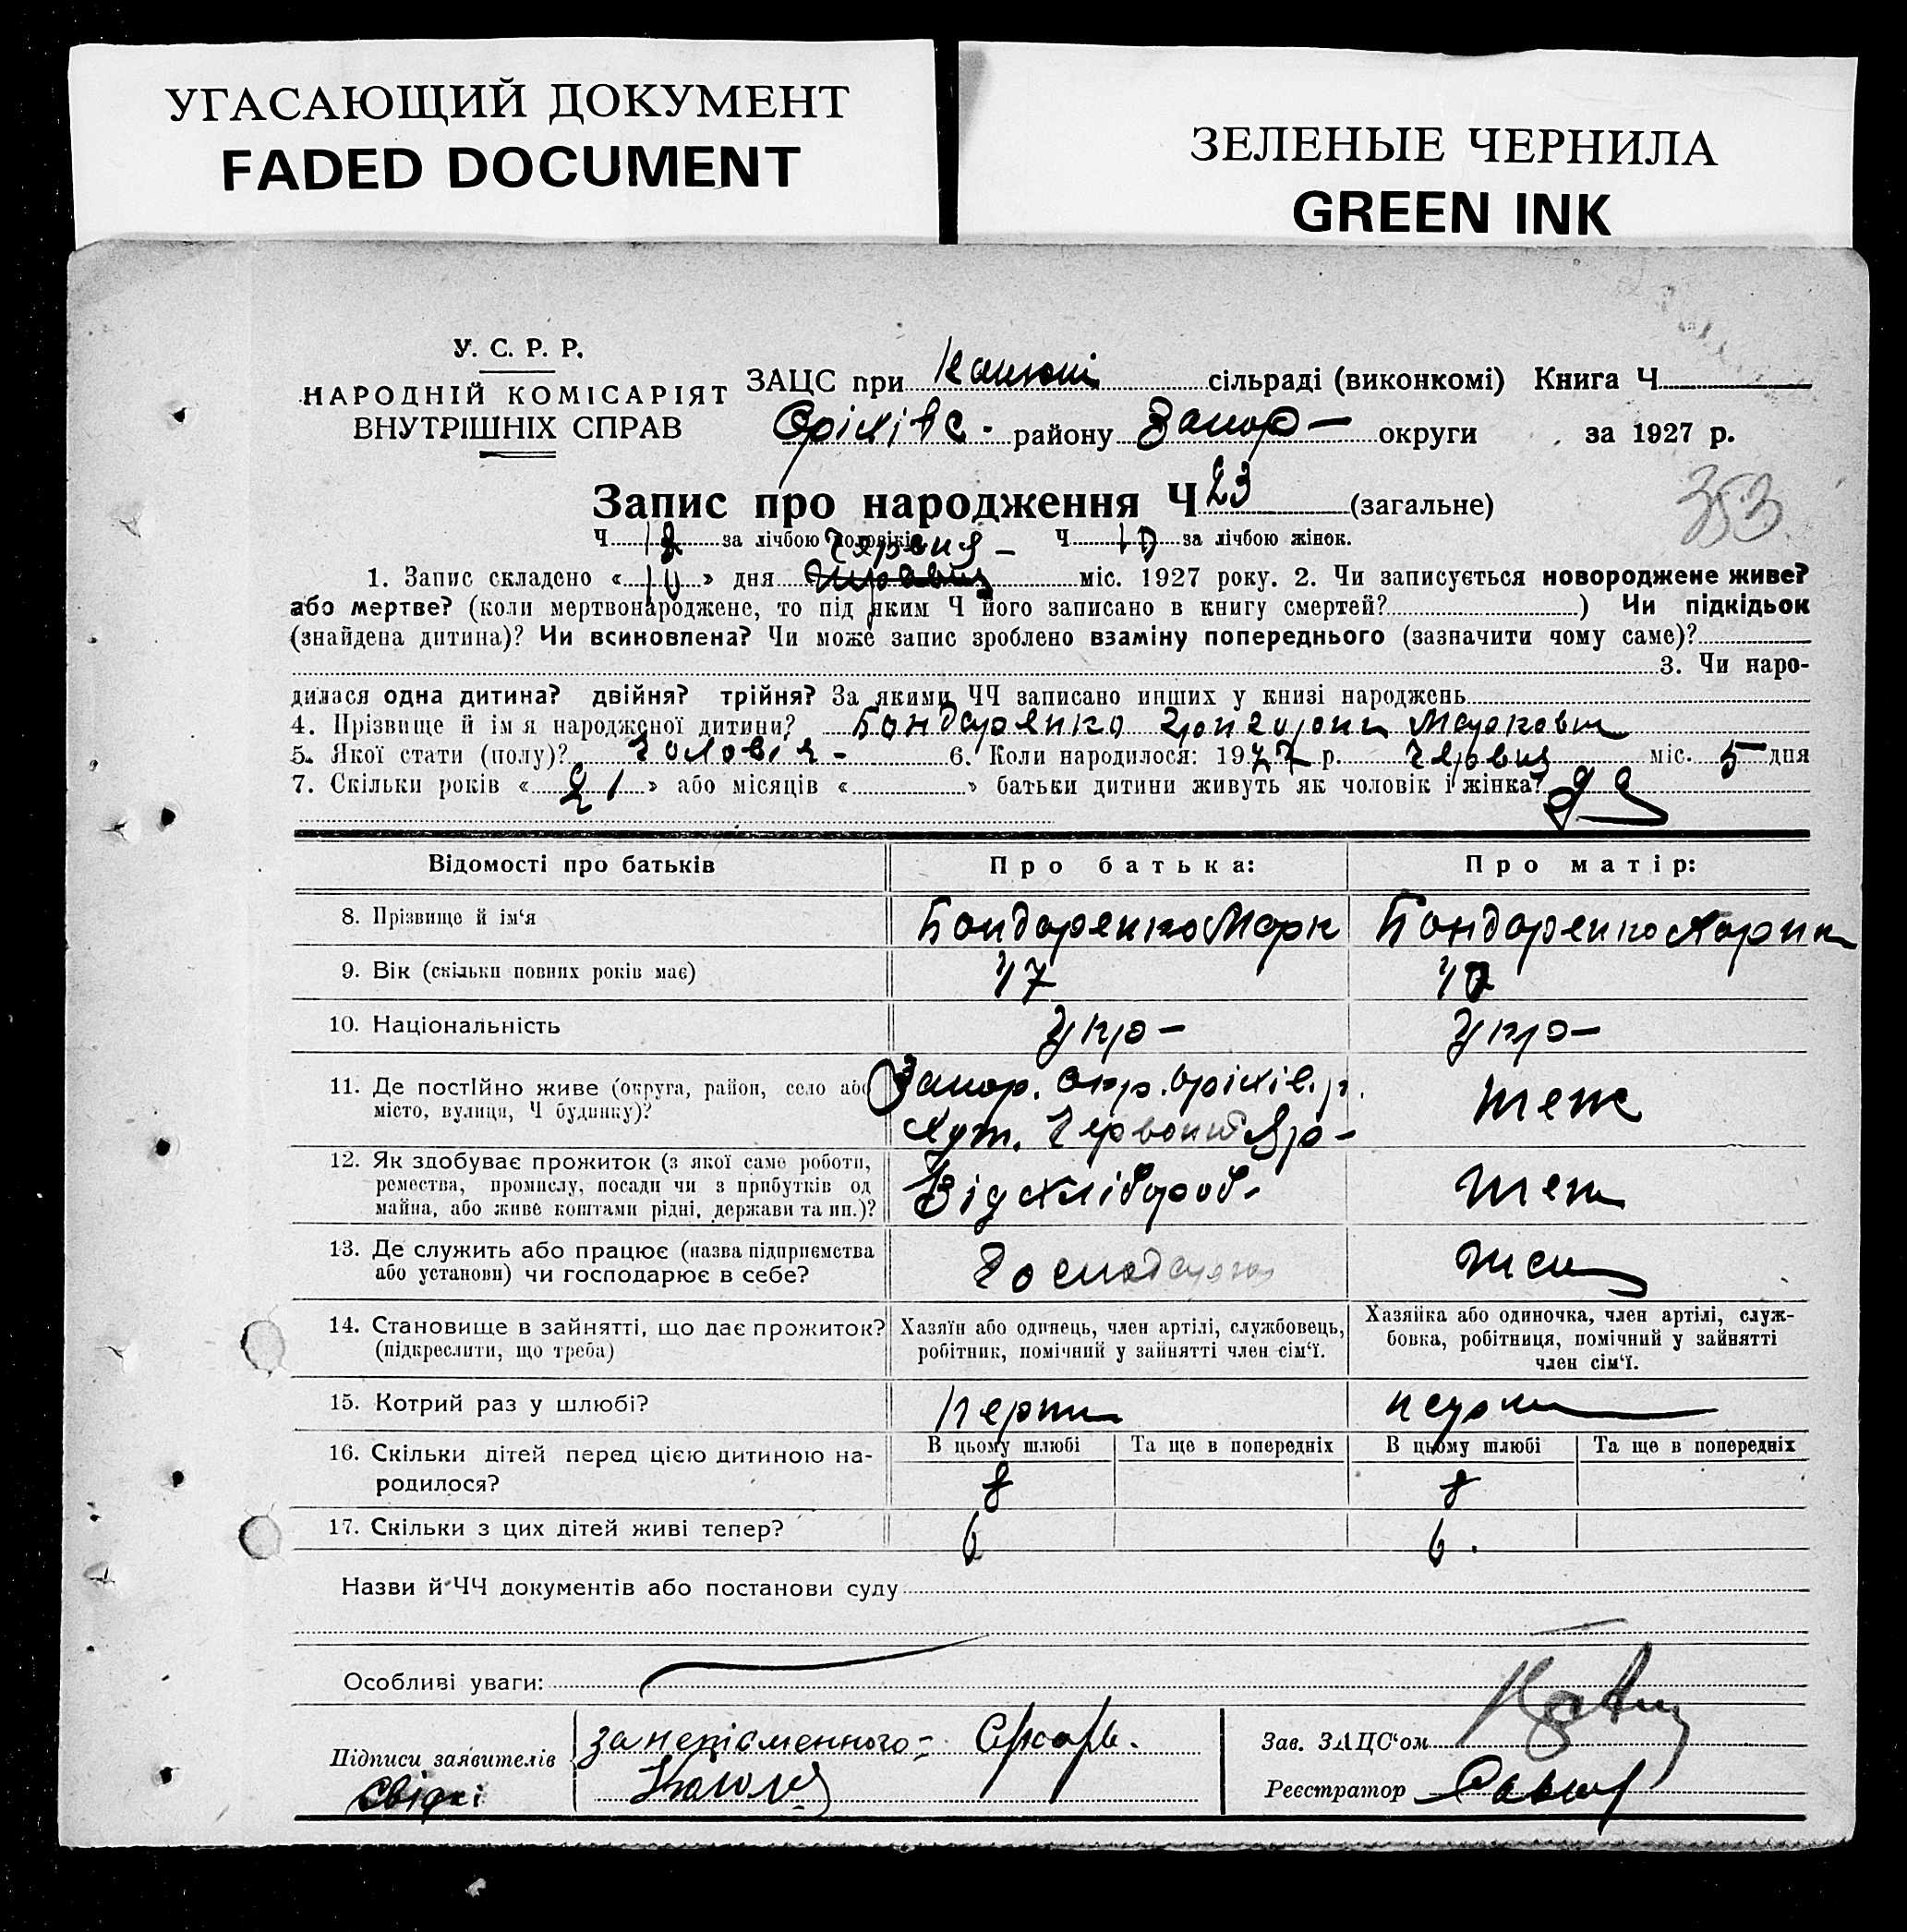 УГАСАЮЩИЙ ДОКУМЕНТ
FADED DOCUMENT
ЗЕЛЕНЫЕ ЧЕРНИЛА
GREEN INK
У. С. Р. Р.
НАРОДНІЙ КОМІСАРІЯТ
ВНУТРІШНІХ СПРАВ
ЗАЦС при сільраді (виконкомі) Книга Ч.
Оріхівс. району Запор— округи за 1927 р.
353
Запис про народження Ч 23 (загальне)
Ч за лічбою чоловіків Ч за лічбою жінок.
Червня —
1. Запис складено « 10 » дня міс. 1927 року. 2. Чи записується новороджене живе?
або мертве? (коли мертвонароджене, то під яким Ч його записано в книгу смертей? ) Чи підкідьок
(знайдена дитина)? Чи всиновлена? Чи може запис зроблено взаміну попереднього (зазначити чому саме)?
3. Чи наро-
дилася одна дитина? двійня? трійня? За якими ЧЧ записано инших у книзі народжень
4. Прізвище й ім я народженої дитини? Бондаренко Маркович
5. Якої стати (полу)? Чоловіч - 6. Коли народилося: 1927 р. червня міс. 5 дня
7. Скільки років « 21 » або місяців « » батьки дитини живуть як чоловік і жінка? да
Відомості про батьків Про батька: Про матір:
8. Прізвище й ім‘я Бондаренко Марк Бондаренко
9. Вік (скільки повних років має) 47
10. Національність Укр— Укр—
11. Де постійно живе (округа, район, село або Запор. окр. Оріхів. р.
місто, вулиця, Ч будинку)? Хут. Червоний Яр — теж
12. Як здобуває прожиток (з якої саме роботи,
ремества, промислу, посади чи з прибутків од Від хлібороб- теж
майна, або живе коштами рідні, держави та ин.)?
13. Де служить або працює (назва підприємства
або установи) чи господарює в себе? Господарює теж
14. Становище в зайнятті, що дає прожиток? Хазяїн або одинець, член артілі, службовець, Хазяйка або одиночка, член артілі, служ-
(підкреслити, що треба) робітник, помічний у зайнятті член сім‘ї. бовка, робітниця, помічний у зайнятті
член сім‘ї.
15. Котрий раз у шлюбі? перши перши
16. Скільки дітей перед цією дитиною на- В цьому шлюбі Та ще в попередніх В цьому шлюбі Та ще в попередніх
родилося? 8 8
17. Скільки з цих дітей живі тепер? 6 6.
Назви й ЧЧ документів або постанови суду
Особливі уваги:
Підписи заявителів за неписьменного- Зав. ЗАЦС‘ом
Свідкі Реєстратор